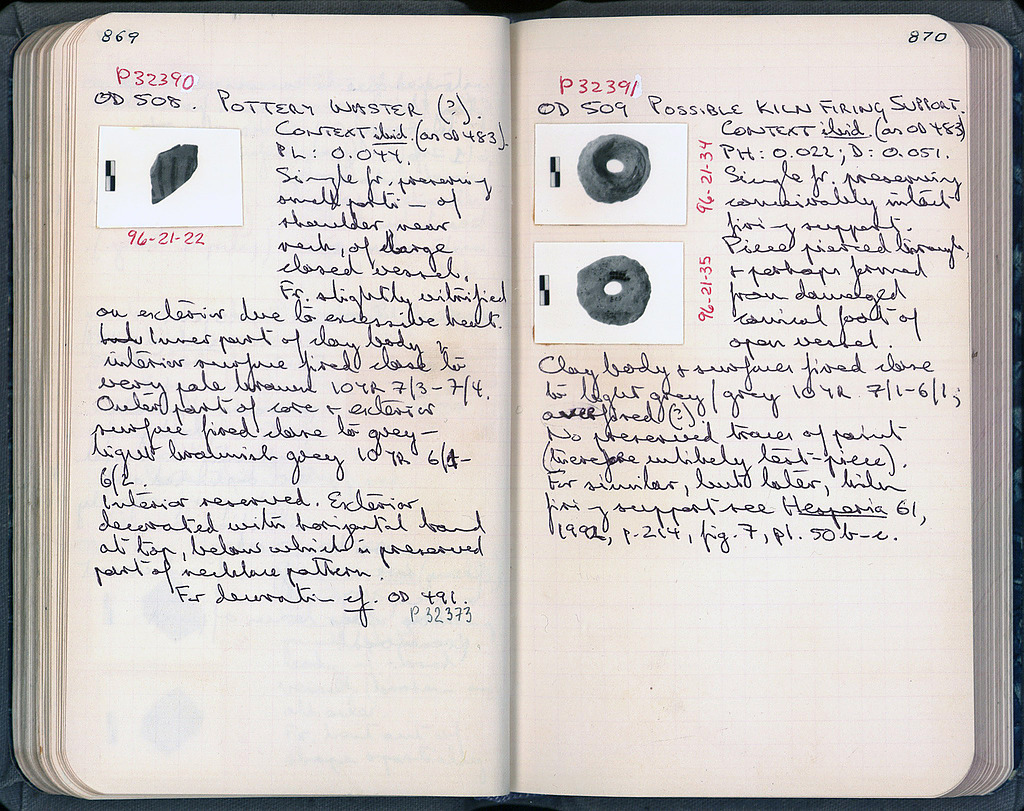 869
P32390
OD 508. POTTERY WASTER (?).
CONTEXT ibid. (as OD 483).
PL: 0.044.
Single fr. preserving
small part – of
shoulder, near
neck, of large
closed vessel.
Fr. slightly vitrified
on exterior due to excessive heat.
Inner part of clay body &
interior surface fired close to
very pale brown 10YR 7/3-7/4.
Outer part of core + exterior
surface fired close to grey –
light brownish grey 10YR 6/1-
6/2.
Interior reserved. Exterior
decorated with horizontal band
at top, below which is preserved
part of necklace pattern.
For decoration cf. OD 491.
P 32373
96-21-22
870
P32391
OD 509 POSSIBLE KILN FIRING SUPPORT.
CONTEXT ibid. (as OD 483)
PH: 0.022; D: 0.051.
Single fr. preserving
conceivably intact
firing support.
Piece pierced through,
+ perhaps formed
from damaged
conical foot of
open vessel.
Clay body + surfaces fired close
to light grey/grey 10YR 7/1-6/1;
overfired (?).
No preserved traces of paint
(therefore unlikely test-piece).
For similar, but later, kiln
firing support see Hesperia 61,
1992, p. 214, fig. 7, pl. 50 b-c.
96-21-34
96-21-35